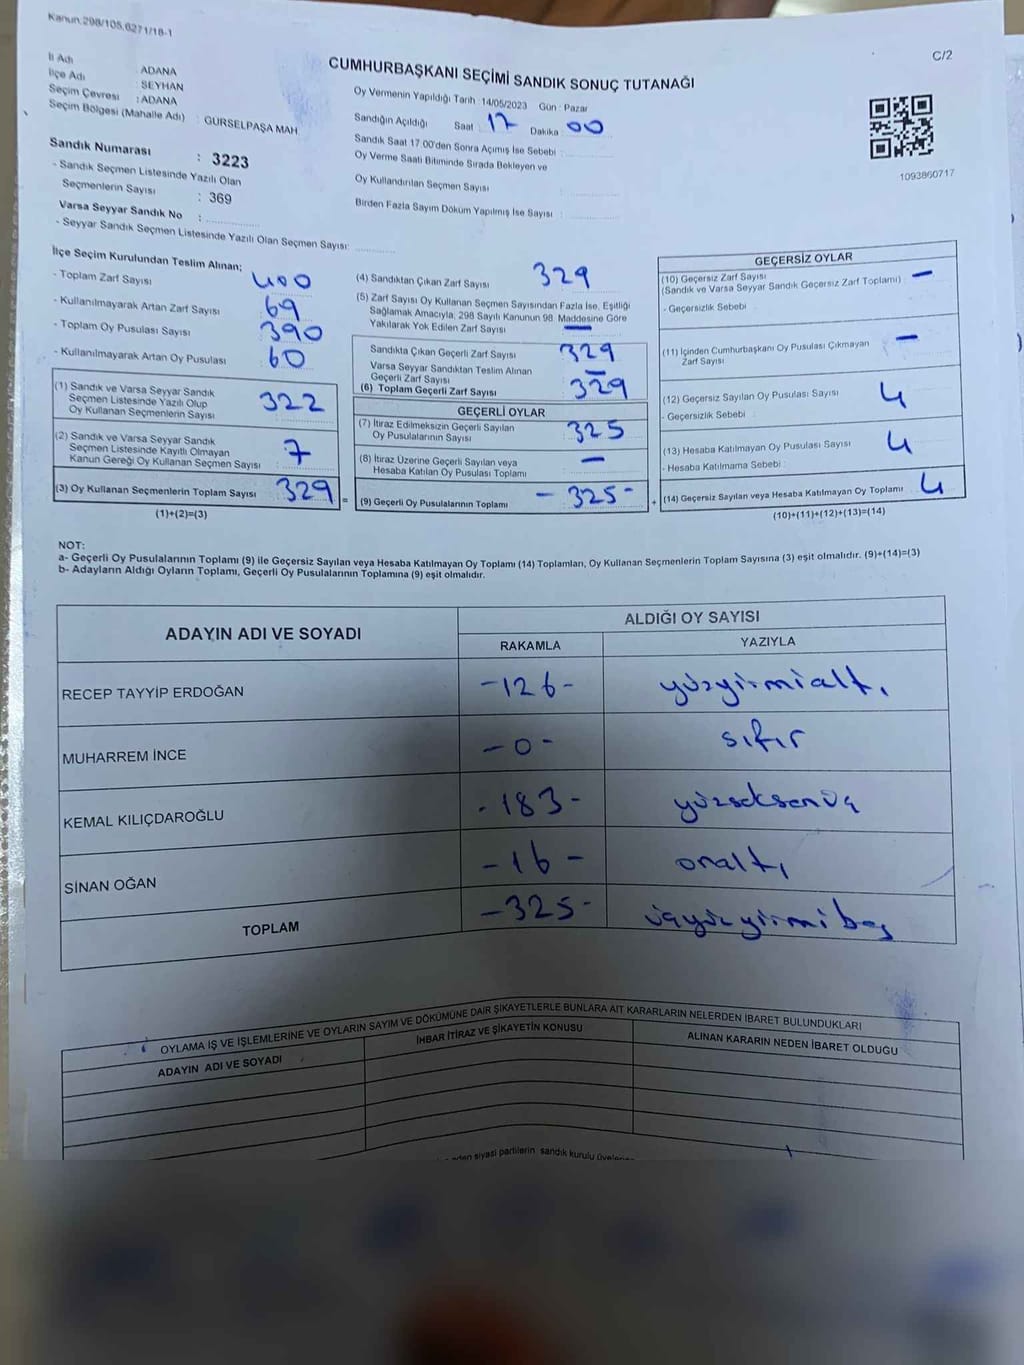 Kanun:298/105,6271/18-1
C/2
CUMHURBAŞKANI SEÇİMİ SANDIK SONUÇ TUTANAĞI
İl Adı : ADANA
İlçe Adı : SEYHAN
Seçim Çevresi : ADANA
Seçim Bölgesi (Mahalle Adı) : GÜRSELPAŞA MAH.
Oy Vermenin Yapıldığı Tarih : 14/05/2023 Gün : Pazar
Sandığın Açıldığı Saat 17 Dakika 00
Sandık Saat 17.00'den Sonra Açımış İse Sebebi :
Oy Verme Saati Bitiminde Sırada Bekleyen ve
Oy Kullandırılan Seçmen Sayısı :
Birden Fazla Sayım Döküm Yapılmış İse Sayısı :
1093860717
Sandık Numarası : 3223
- Sandık Seçmen Listesinde Yazılı Olan
Seçmenlerin Sayısı : 369
Varsa Seyyar Sandık No :
- Seyyar Sandık Seçmen Listesinde Yazılı Olan Seçmen Sayısı:
İlçe Seçim Kurulundan Teslim Alınan;
- Toplam Zarf Sayısı 400
- Kullanılmayarak Artan Zarf Sayısı 69
- Toplam Oy Pusulası Sayısı 390
- Kullanılmayarak Artan Oy Pusulası 60
(1) Sandık ve Varsa Seyyar Sandık
Seçmen Listesinde Yazılı Olup
Oy Kullanan Seçmenlerin Sayısı 322
(2) Sandık ve Varsa Seyyar Sandık
Seçmen Listesinde Kayıtlı Olmayan
Kanun Gereği Oy Kullanan Seçmen Sayısı : 7
(3) Oy Kullanan Seçmenlerin Toplam Sayısı 329
(1)+(2)=(3)
=
(4) Sandıktan Çıkan Zarf Sayısı 329
(5) Zarf Sayısı Oy Kullanan Seçmen Sayısından Fazla İse, Eşitliği
Sağlamak Amacıyla, 298 Sayılı Kanunun 98. Maddesine Göre
Yakılarak Yok Edilen Zarf Sayısı —
Sandıkta Çıkan Geçerli Zarf Sayısı 329
Varsa Seyyar Sandıktan Teslim Alınan
Geçerli Zarf Sayısı —
(6) Toplam Geçerli Zarf Sayısı 329
GEÇERLİ OYLAR
(7) İtiraz Edilmeksizin Geçerli Sayılan
Oy Pusulalarının Sayısı 325
(8) İtiraz Üzerine Geçerli Sayılan veya
Hesaba Katılan Oy Pusulası Toplamı —
(9) Geçerli Oy Pusulalarının Toplamı - 325 -
+
GEÇERSİZ OYLAR
(10) Geçersiz Zarf Sayısı
(Sandık ve Varsa Seyyar Sandık Geçersiz Zarf Toplamı) : —
- Geçersizlik Sebebi :
(11) İçinden Cumhurbaşkanı Oy Pusulası Çıkmayan
Zarf Sayısı —
(12) Geçersiz Sayılan Oy Pusulası Sayısı 4
- Geçersizlik Sebebi :
(13) Hesaba Katılmayan Oy Pusulası Sayısı 4
- Hesaba Katılmama Sebebi :
(14) Geçersiz Sayılan veya Hesaba Katılmayan Oy Toplamı 4
(10)+(11)+(12)+(13)=(14)
NOT:
a- Geçerli Oy Pusulalarının Toplamı (9) ile Geçersiz Sayılan veya Hesaba Katılmayan Oy Toplamı (14) Toplamları, Oy Kullanan Seçmenlerin Toplam Sayısına (3) eşit olmalıdır. (9)+(14)=(3)
b- Adayların Aldığı Oyların Toplamı, Geçerli Oy Pusulalarının Toplamına (9) eşit olmalıdır.
ADAYIN ADI VE SOYADI
ALDIĞI OY SAYISI
RAKAMLA YAZIYLA
RECEP TAYYİP ERDOĞAN -126- yüzyirmialtı
MUHARREM İNCE -0- sıfır
KEMAL KILIÇDAROĞLU -183- yüzseksenüç
SİNAN OĞAN -16- onaltı
TOPLAM -325- üçyüzyirmibeş
OYLAMA İŞ VE İŞLEMLERİNE VE OYLARIN SAYIM VE DÖKÜMÜNE DAİR ŞİKAYETLERLE BUNLARA AİT KARARLARIN NELERDEN İBARET BULUNDUKLARI
ADAYIN ADI VE SOYADI İHBAR İTİRAZ VE ŞİKAYETİN KONUSU ALINAN KARARIN NEDEN İBARET OLDUĞU
siyasi partilerin sandık kurulu